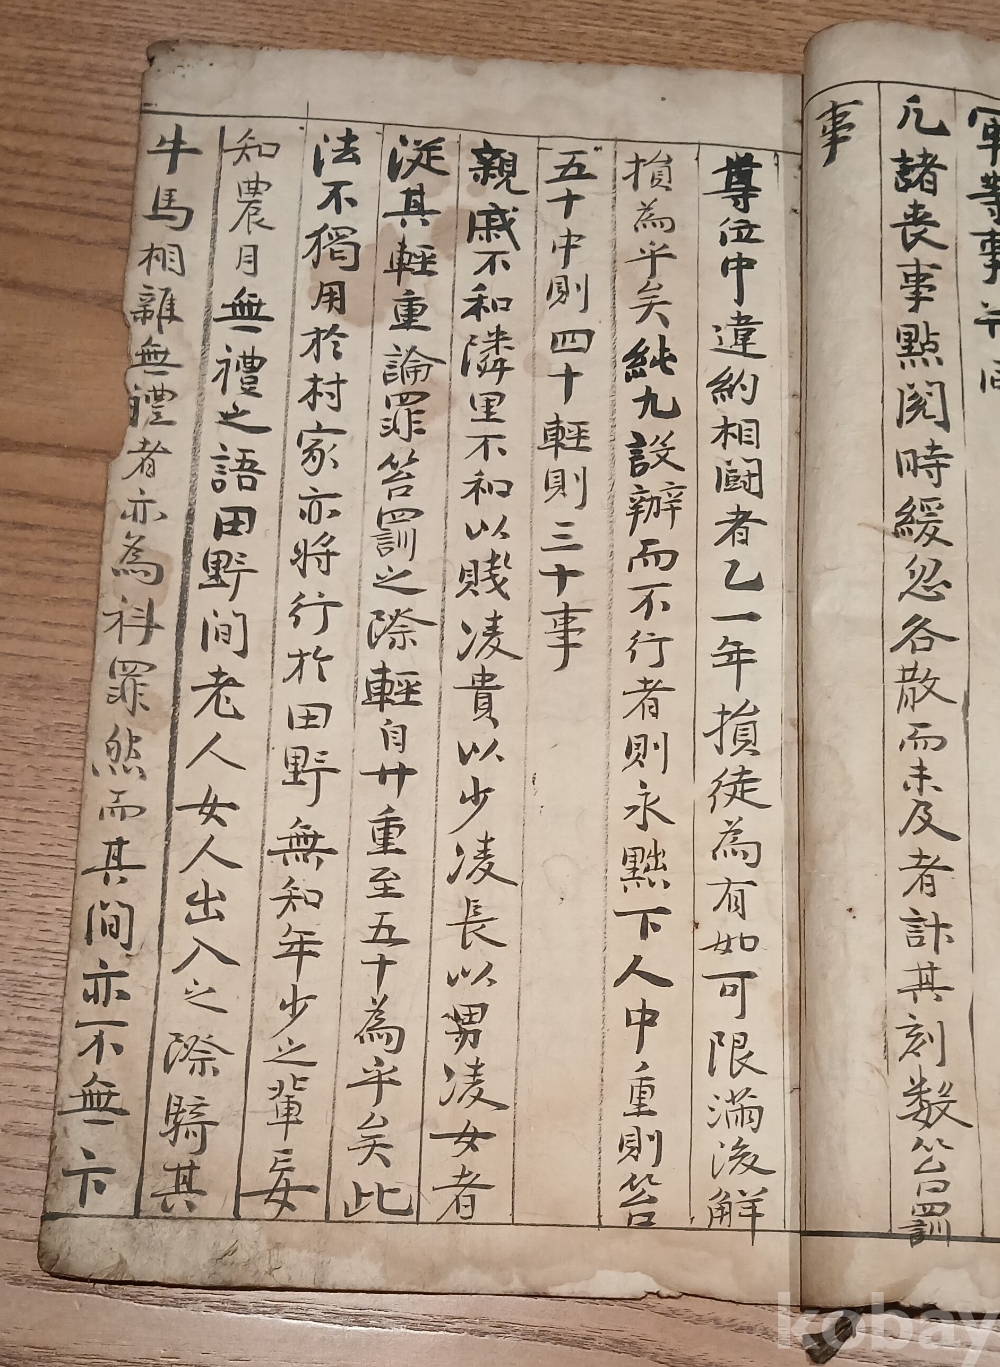 軍等事並同
凡諸喪事點閱時緩忽各散而未及者計其刻数笞罰
事
尊位中違約相鬪者乙一年損徒為有如可限滿後解
損為乎矣純九設辦而不行者則永黜下人中重則笞
五十中則四十輕則三十事
親戚不和隣里不和以賤凌貴以少凌長以男凌女者
從其輕重論罪笞罰之際輕自廿重至五十為乎矣此
法不獨用於村家亦將行於田野無知年少之輩妄
知農月無禮之語田野間老人女人出入之際騎其
牛馬相雜無禮者亦為科罪然而其間亦不無卞
kobay